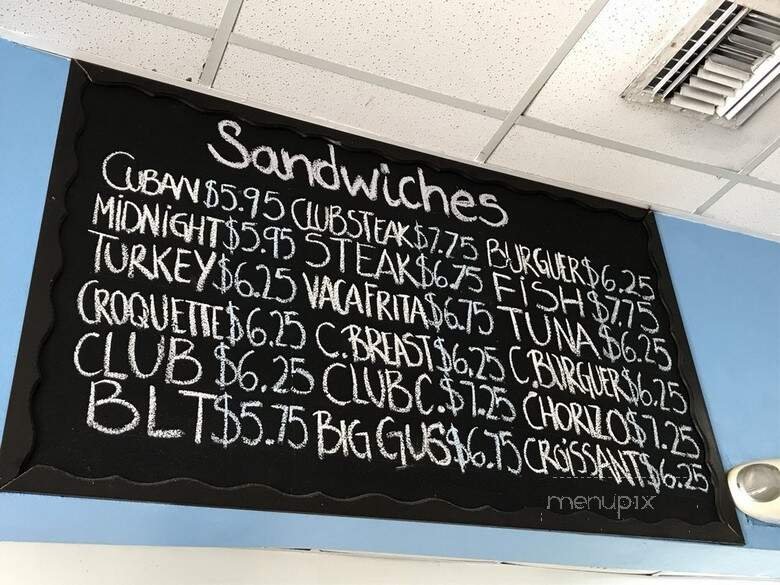 Sandwiches
CUBAN $5.95 CLUB STEAK $7.75 BURGUER $6.25
MIDNIGHT $5.95 STEAK $6.75 FISH $7.75
TURKEY $6.25 VACA FRITA $6.75 TUNA $6.25
CROQUETTE $6.25 C. BREAST $6.25 C. BURGUER $6.25
CLUB $6.25 CLUB C. $7.25 CHORIZO $7.25
BLT $5.75 BIG GUS $6.75 CROISSANT $6.25
menupix